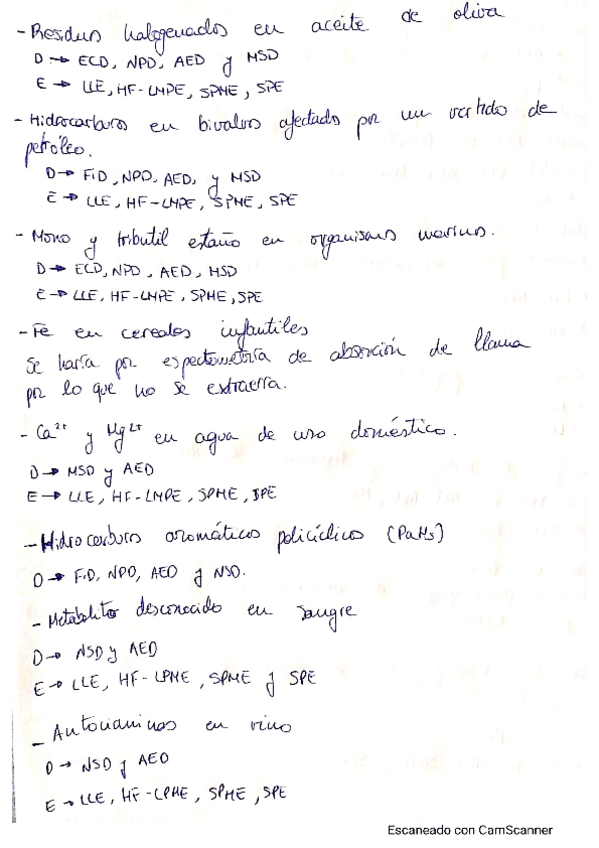 - Residuos halogenados en aceite de oliva
D → ECD, NPD, AED y MSD
E → LLE, HF-LMPE, SPME, SPE
- Hidrocarburos en bivalvos afectados por un vertido de
petróleo.
D → FID, NPD, AED, y MSD
E → LLE, HF-LMPE, SPME, SPE
- Mono y tributil estaño en organismos marinos.
D → ECD, NPD, AED, MSD
E → LLE, HF-LMPE, SPME, SPE
- Fe en cereales infantiles
Se haría por espectometría de absorción de llama
por lo que no se extraerra.
- Ca²⁺ y Mg²⁺ en agua de uso doméstico.
D → MSD y AED
E → LLE, HF-LMPE, SPME, SPE
- Hidrocarburos aromáticos policíclicos (PaHs)
D → FID, NPD, AED y MSD.
- Metabolitos desconocido en sangre
D → MSD y AED
E → LLE, HF-LPME, SPME y SPE
- Antocianinas en vino
D → MSD y AED
E → LLE, HF-LPME, SPME, SPE
Escaneado con CamScanner